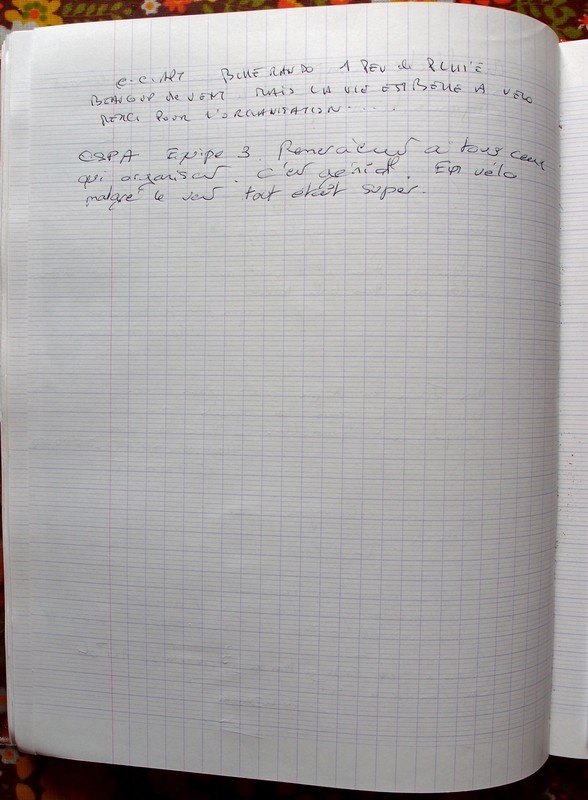 e.c. APT BELLE RANDO 1 PEU de PLUIE
BEAUCOUP de VENT MAIS LA VIE EST BELLE A VELO
MERCI POUR L'ORGANISATION....
Equipe 3. Remerciement a tous ceux
qui organisent. C'est génial. En vélo
malgré le vent tout était super.